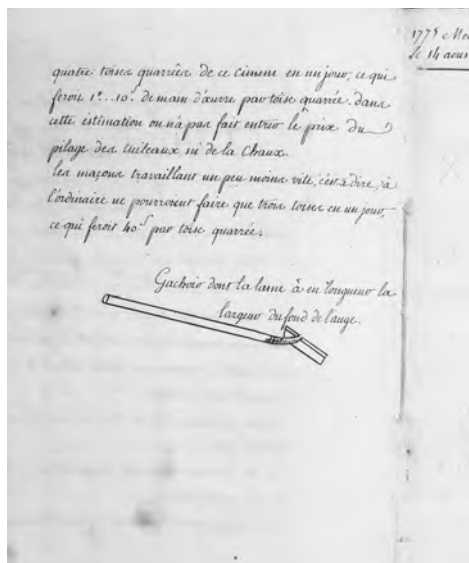 quatre toises quarrées de ce ciment en un jour, ce qui
feroit 1.ᵗ...10.ˢ de main d'œuvre par toise quarrée. dans
cette estimation on n'a pas fait entrer le prix du
pilage des tuileaux ni de la Chaux.
les maçons travaillant un peu moins vite, c'est à dire, à
l'ordinaire ne pourroient faire que trois toises en un jour,
ce qui feroit 40.ˢ par toise quarrée.
Gachoir dont la lame à en longueur la
largeur du fond de l'auge.
1775
le 14 aoust